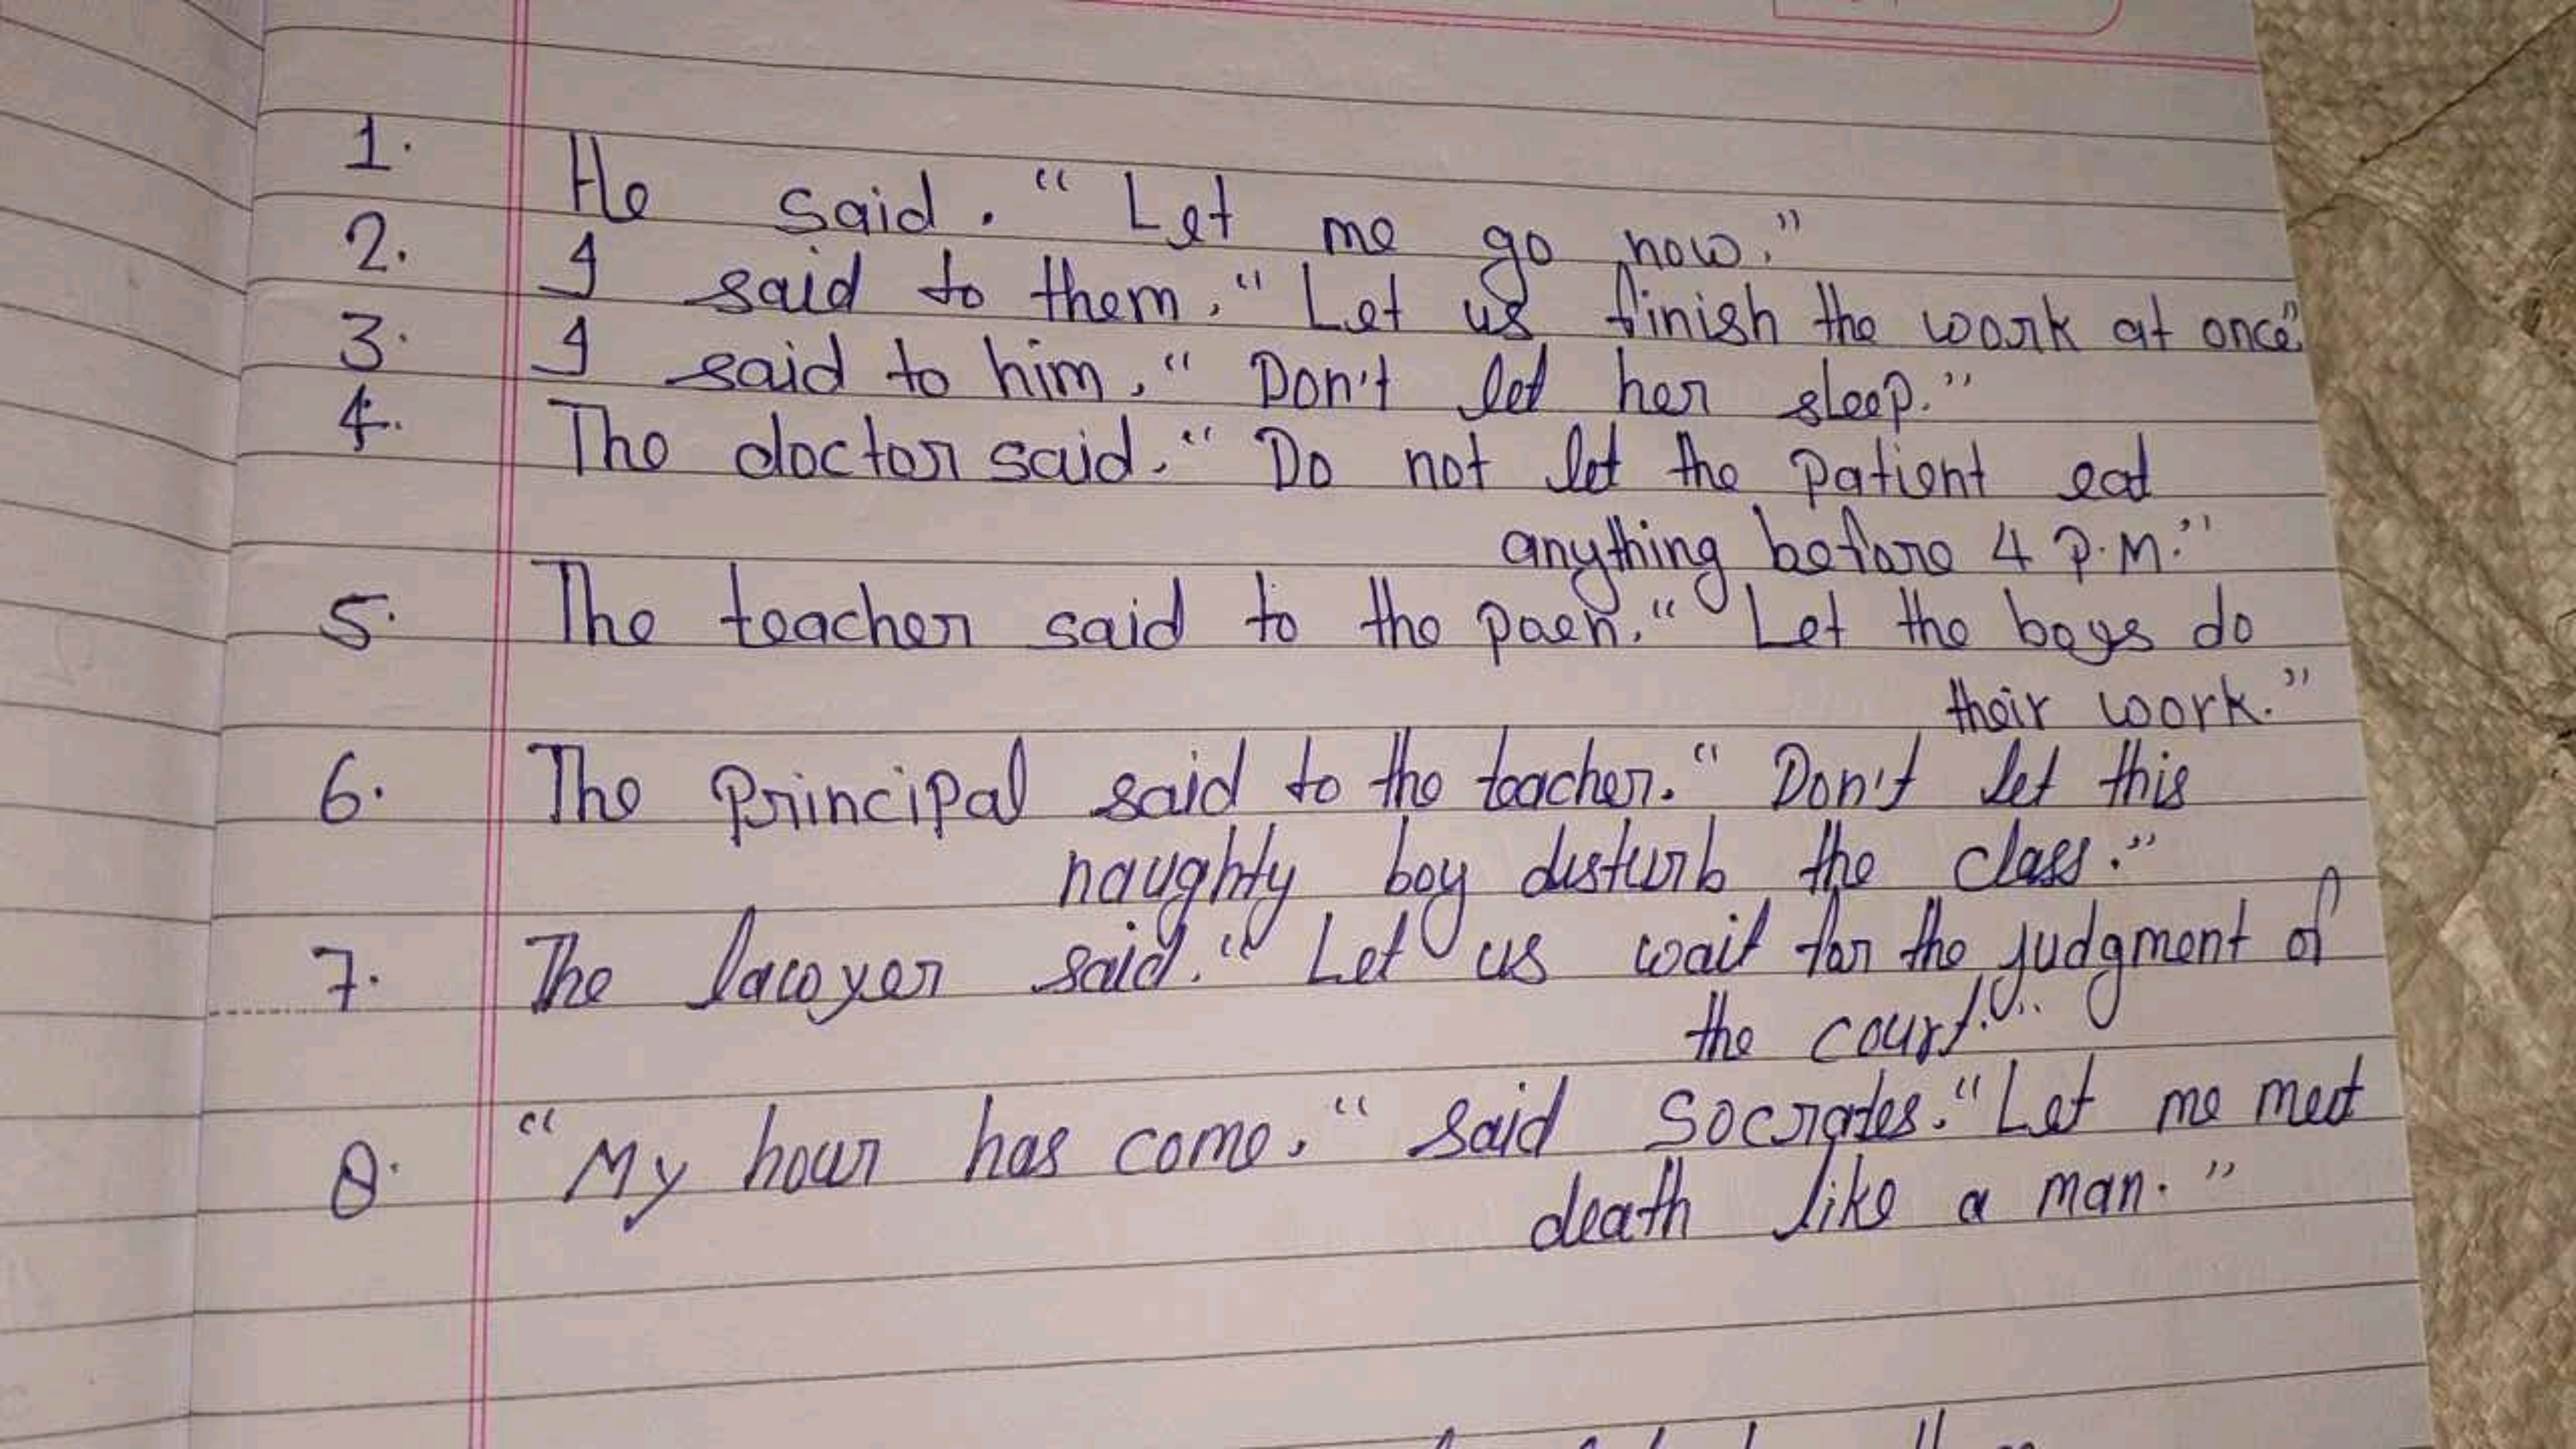 1. He said. “ Let me go now.”
2. I said to them, “ Let us finish the work at once”.
3. I said to him, “ Don't let her sleep.”
4. The doctor said. “ Do not let the patient eat
anything before 4 P.M.”
5. The teacher said to the paen. “ Let the boys do
their work.”
6. The Principal said to the teacher. “ Don't let this
naughty boy disturb the class.”
7. The lawyer said. “ Let us wait for the judgment of
the court.”
8. “ My hour has come, “ said Socrates. “ Let me meet
death like a man. ”